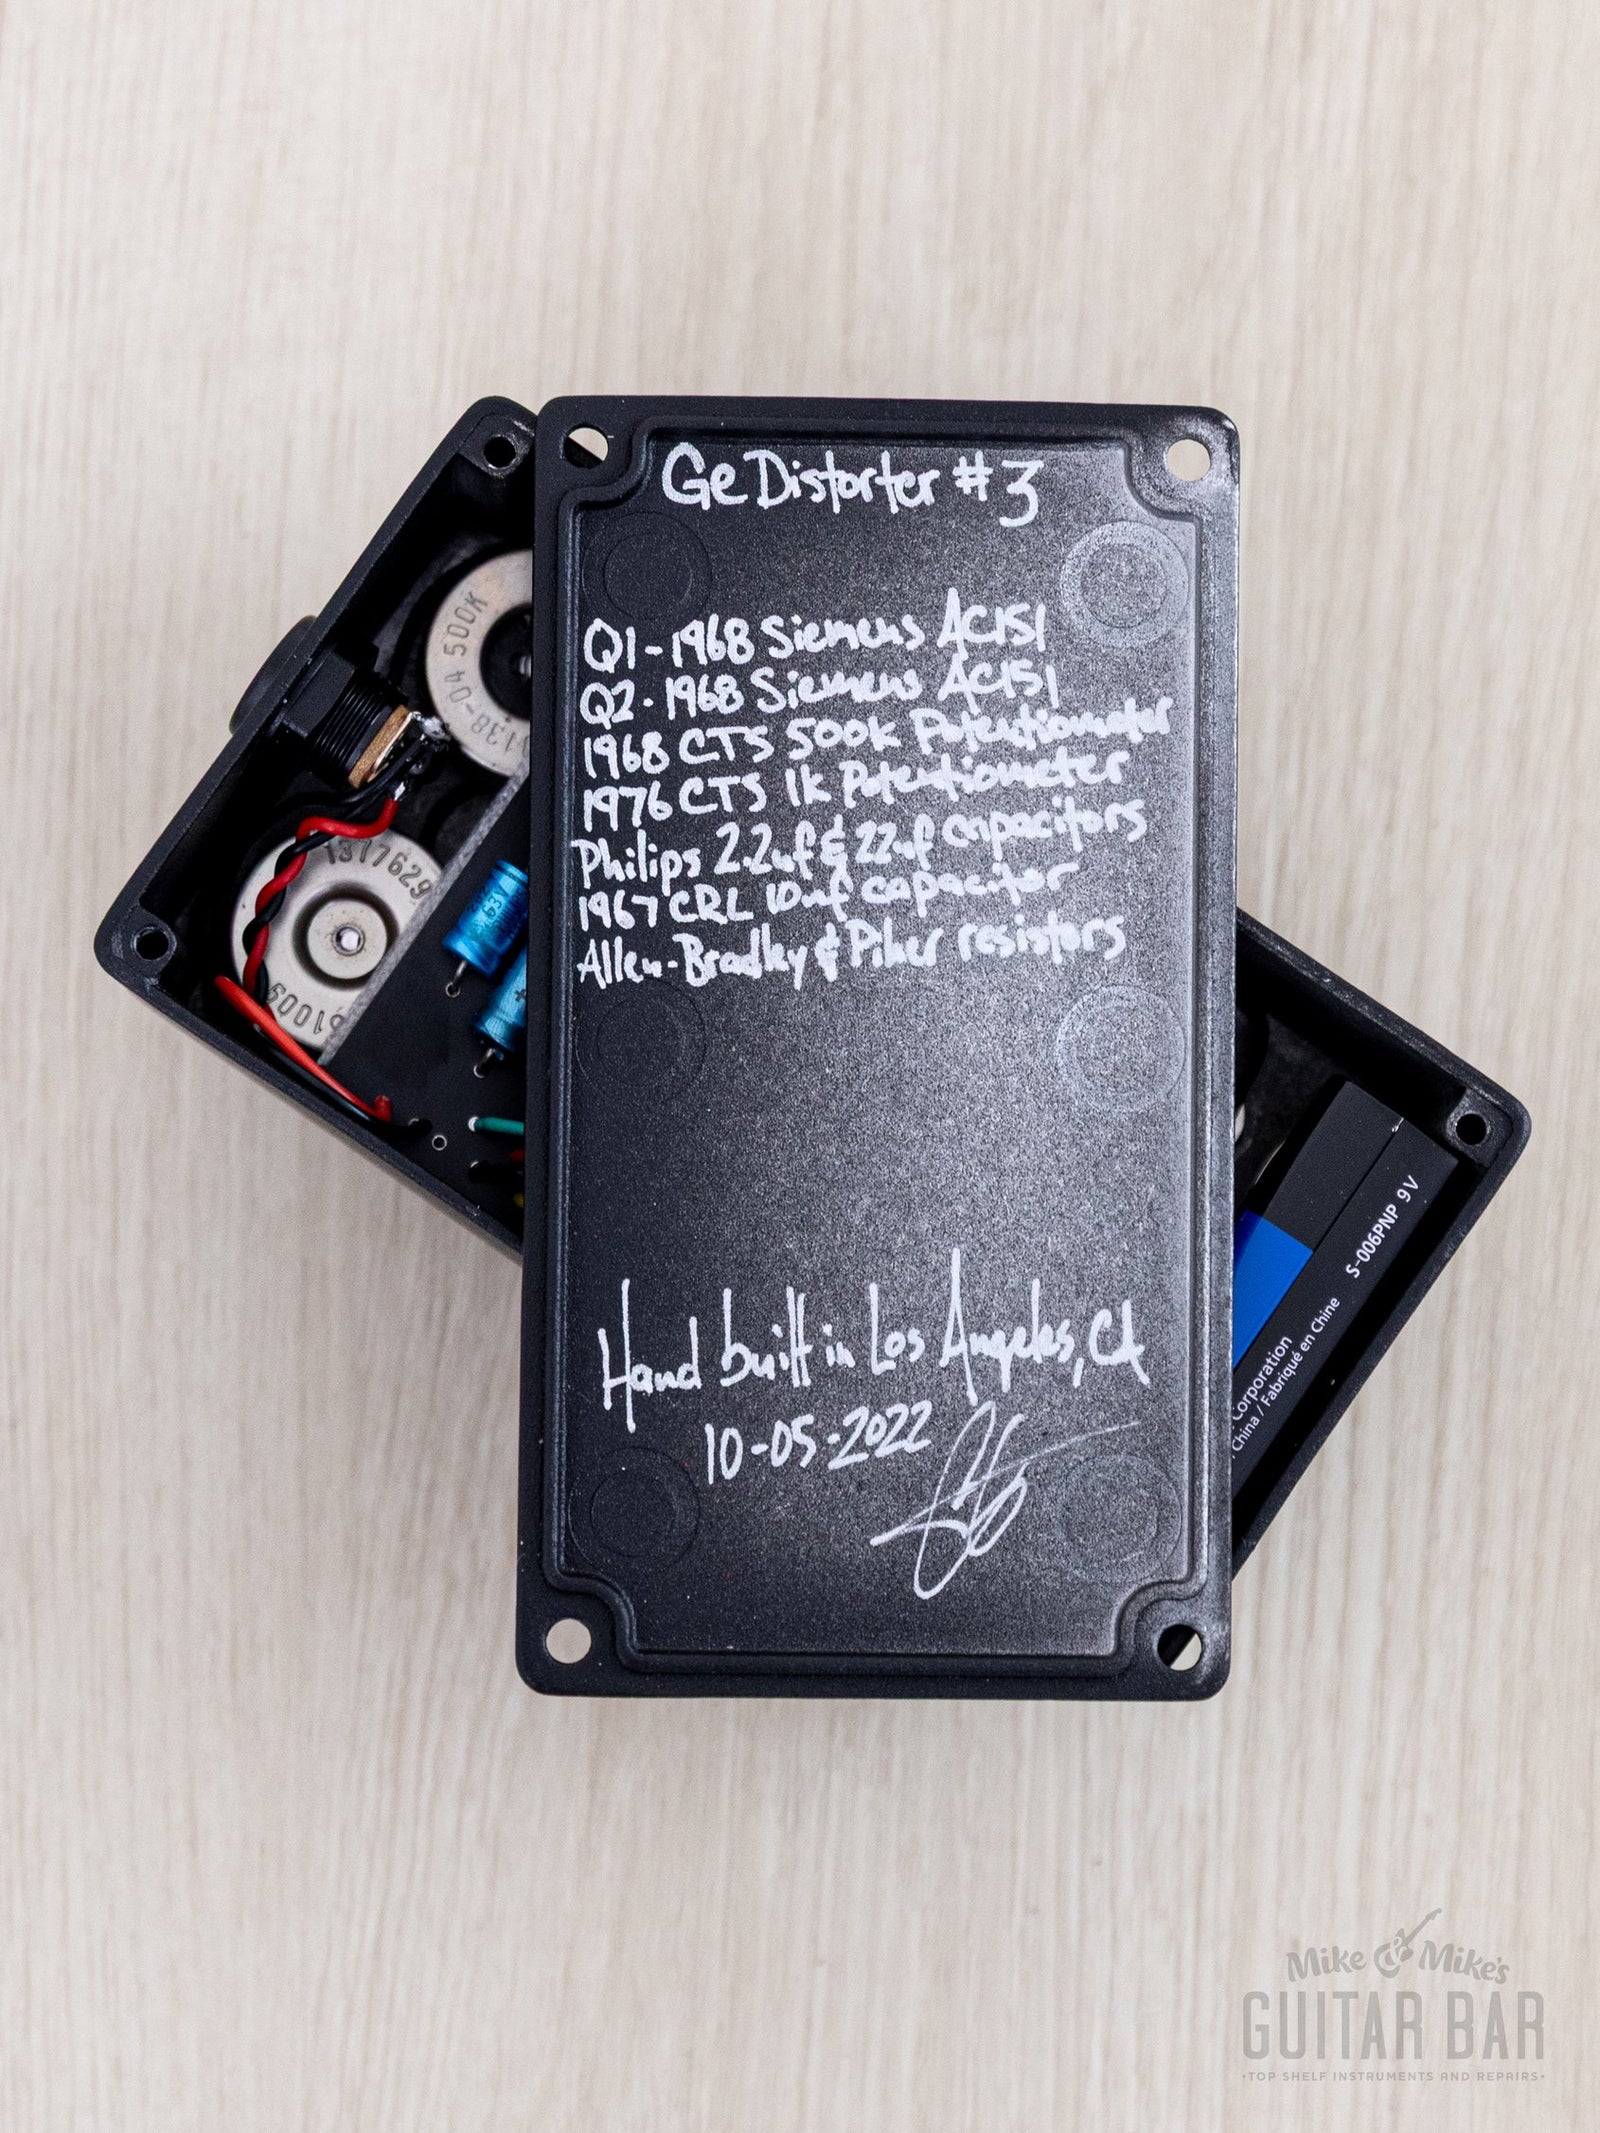 Ge Distorter #3
Q1 - 1968 Siemens AC151
Q2 - 1968 Siemens AC151
1968 CTS 500k Potentiometer
1976 CTS 1k Potentiometer
Philips 2.2uf & 22uf capacitors
1967 CRL 10nf capacitor
Allen-Bradley & Piher resistors
Hand built in Los Angeles, CA
10-05-2022
500K
138-04
1377629
61009
63V
S-006PNP 9V
Corporation
China / Fabriqué en Chine
Mike & Mike's
GUITAR BAR
·TOP SHELF INSTRUMENTS AND REPAIRS·